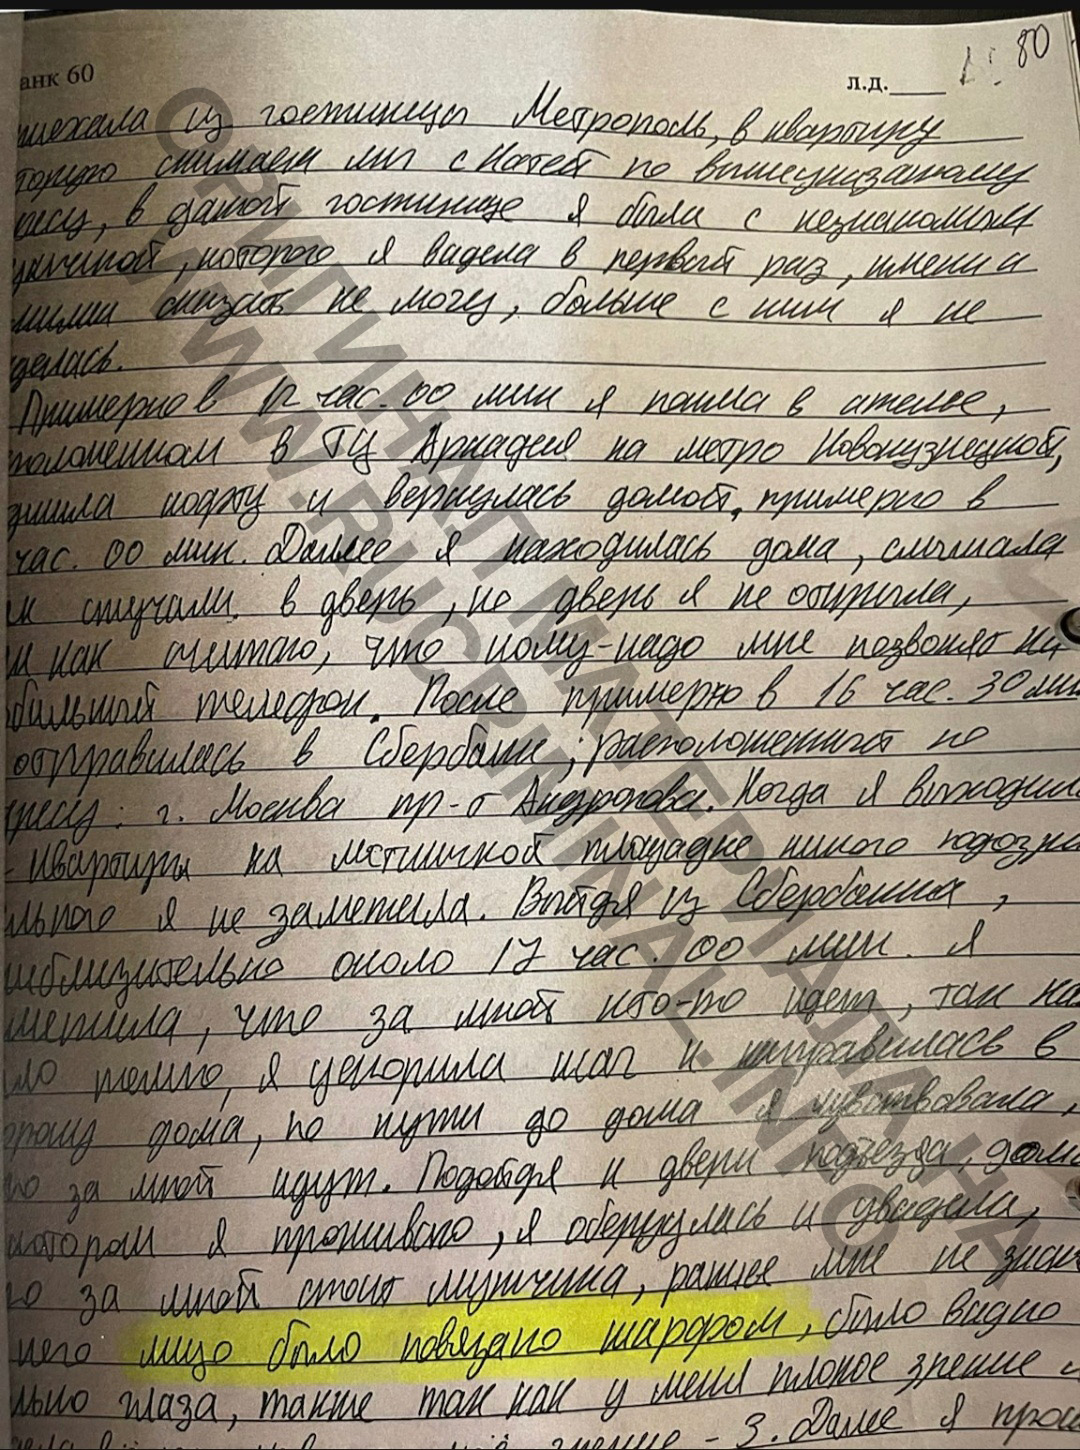 анк 60
л.д.____ 80
из гостиницы Метрополь, в квартиру
снимаем мы с Катей по вышеуказанному
, в даной гостинице я была с незнакомым
, которого я видела в первый раз, имени и
сказать не могу, больше с ним я не
делась.
Примерно в 12 час. 00 мин я пошла в ателье,
положенном в ТЦ Аркадия на метро Новокузнецкой,
кофту и вернулась домой, примерно в
час. 00 мин. Далее я находилась дома, слышала
к стучали в дверь, но дверь я не открыла,
к как считаю, что кому-надо мне позвонят на
бильный телефон. После примерно в 16 час. 30 мин
отправилась в Сбербанк, расположенный по
ресу: г. Москва пр-т Андропова. Когда я выходила
квартиры на лестничной площадке никого подозри
льного я не заметила. Выйдя из Сбербанка,
иблизительно около 17 час. 00 мин. я
метила, что за мной кто-то идет, так ка
ло темно, я ускорила шаг и направилась в
орону дома, по пути до дома я чувствовала,
то за мной идут. Подойдя к двери подъезда, дома
котором я проживаю, я обернулась и увидела,
то за мной стоит мужчина, ранее мне не знак
него лицо было повязано шарфом, было видно
лько глаза, также так как у меня плохое зрение и
зрение - 3. Далее я
ОРИГИНАЛ МАТЕРИАЛА НА
WWW.RUCRIMINAL.INFO